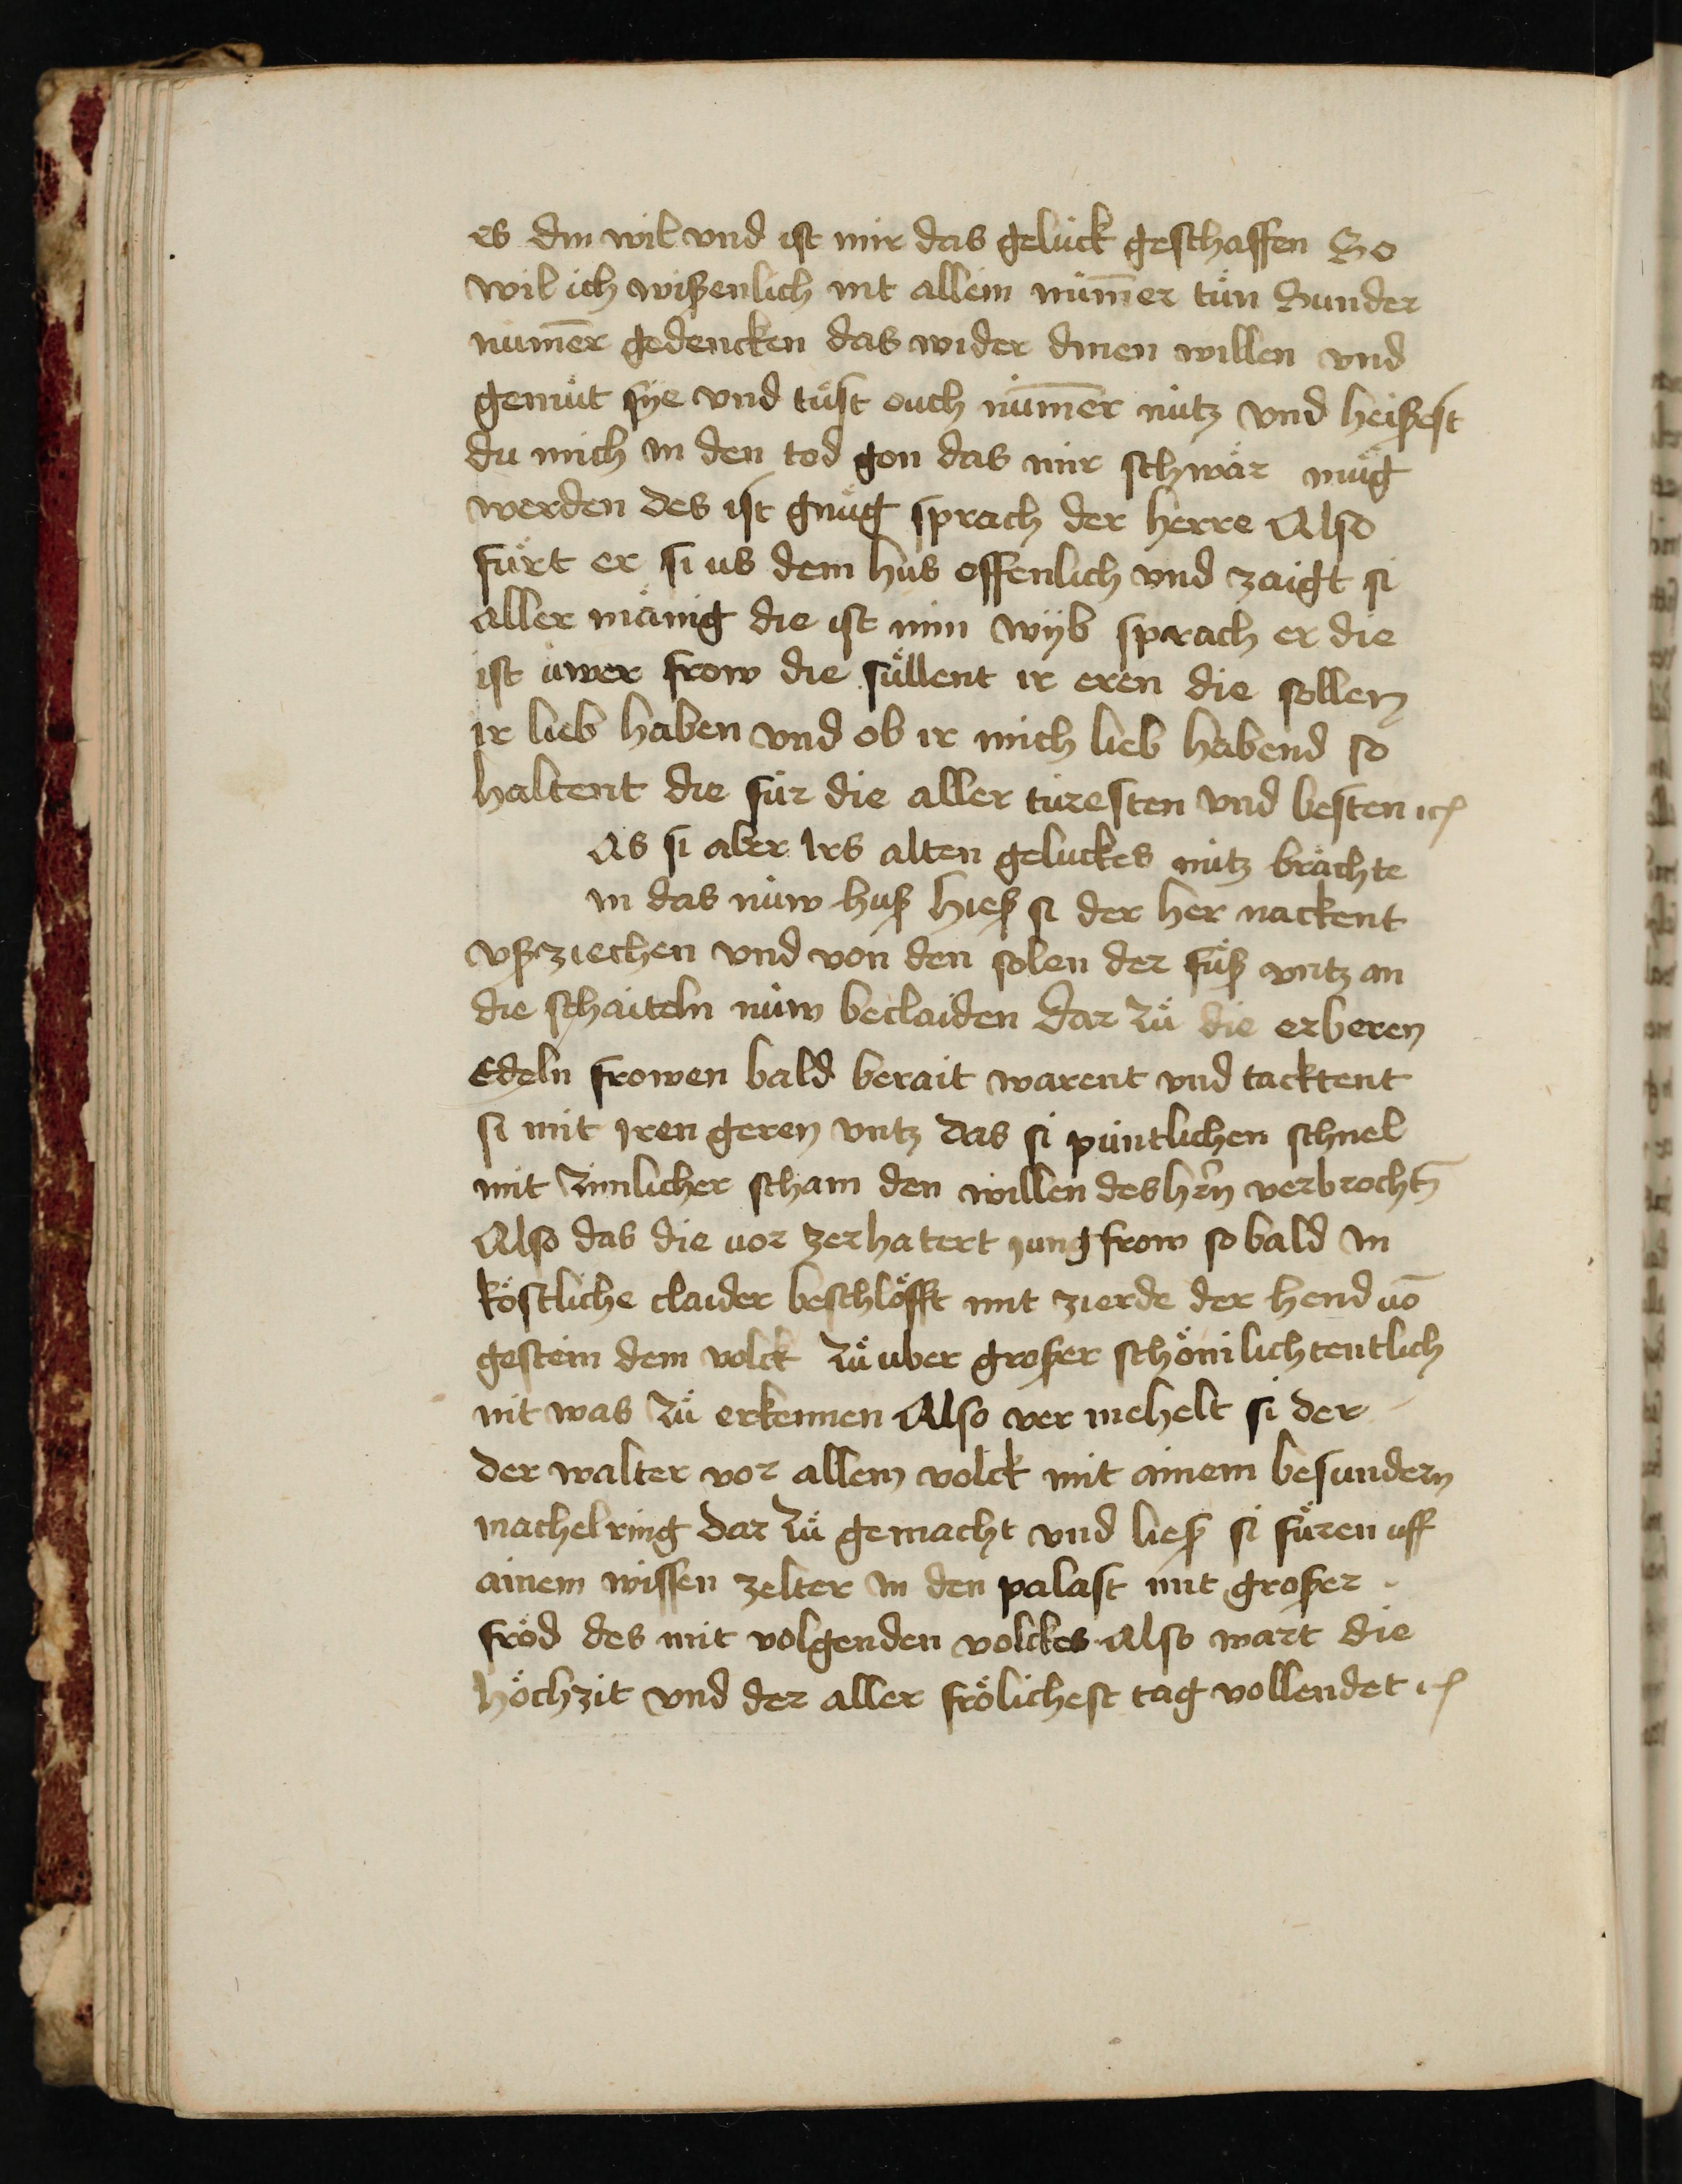 es din wil vnd ist mir das gelück geschaffen So
wil ich wißenlich nit allein nüm̄er tůn Sunder
num̄er gedencken das wider dinen willen vnd
gemůt sÿe vnd tůst ouch nüm̄er nütz vnd heißest
du mich in den tod gon das mir schwär můg
werden des ist gnůg sprach der herre Also
fůrt er si us dem hus offenlich vnd zaigt si
aller mänig die ist min wÿb sprach er die
ist üwer frow die süllent ir eren die sollen
ir lieb haben vnd ob ir mich lieb habend so
haltent die für die aller türesten vnd besten ꝛc
As si aber Irs alten geluckes nütz brächte
in das nüw huß hieß si der her nackent
vßziechen vnd von den solen der fůß vntz an
die schaiteln nüw beclaiden dar zů die erberen
Edeln frowen bald berait warent vnd tacktent
si mit Iren geren vntz das si püntlichen schnel
mit zimlicher scham den willen des hr̄n verbrocht̄
Also das die vor zerhatert jungfrow so bald in
köstliche claider beschlöfft mit zierde der hend vō
gestein dem volck zů uber großer schöni lichtentlich
nit was zů erkennen Also ver mehelt si der
der walter vor allem volck mit ainem besundern
machelring dar zů gemacht vnd ließ si fůren uff
ainem wissen zelter in den palast mit großer
fröd des mit volgenden volckes Also wart die
höchzit vnd der aller frölichest tag vollendet ꝛc